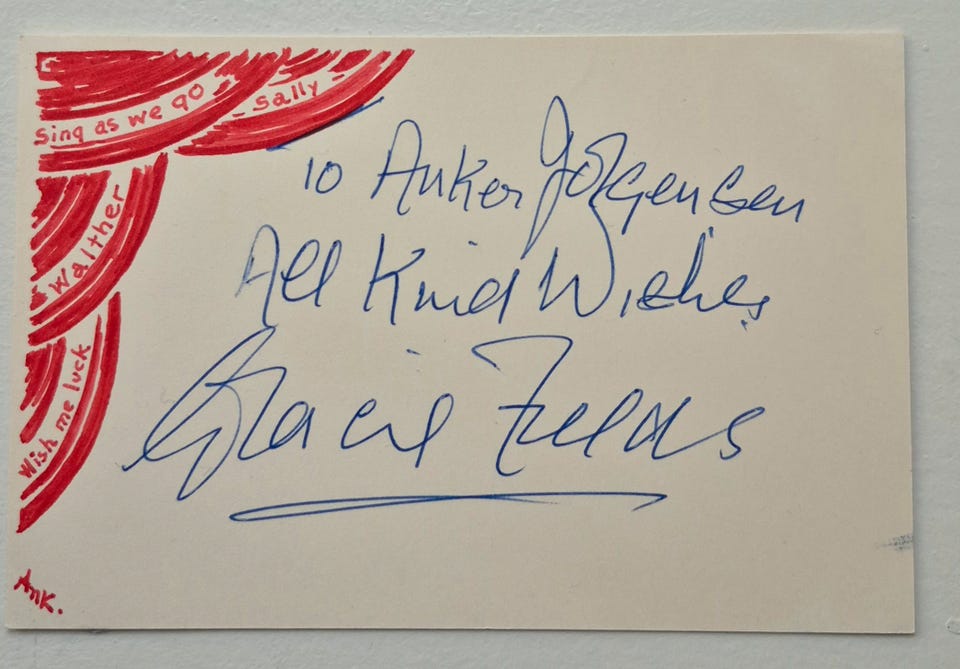 Sing as we go
- Sally -
Walther
Wish me luck
To Anker Jörgensen
All Kind Wishes
Gracie Fields
Ank.